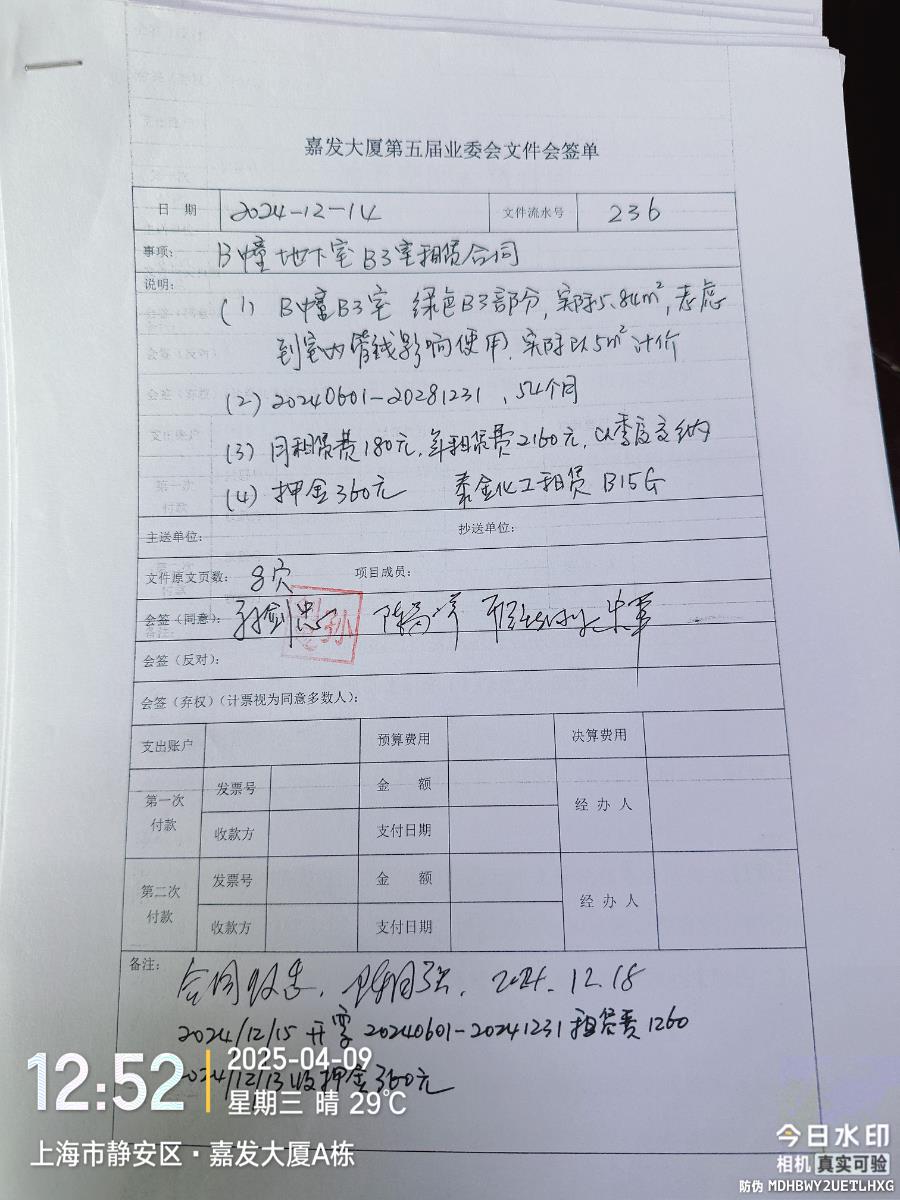 嘉发大厦第五届业委会文件会签单
日 期 2024-12-14 文件流水号 236
事项: B幢地下室B3室租赁合同
说明:
(1) B幢B3室 绿色B3部分,实际5.84m²,考虑
到室内管线影响使用,实际以5m²计价
(2) 20240601-20281231,54个月
(3) 月租赁费180元,年租赁费2160元,以季度交纳
(4) 押金360元 泰金化工租赁B15G
主送单位: 抄送单位:
文件原文页数: 8页 项目成员:
会签(同意): 孙剑忠
会签(反对):
会签(弃权)(计票视为同意多数人):
支出账户 预算费用 决算费用
第一次付款 发票号 金 额 经 办 人
收款方 支付日期
第二次付款 发票号 金 额 经 办 人
收款方 支付日期
备注:
合同 2024.12.18
2024/12/15 开票 20240601-20241231租赁费1260
2024/12/13收押金360元
12:52
2025-04-09
星期三 晴 29℃
上海市静安区·嘉发大厦A栋
今日水印
相机 真实可验
防伪 MDHBWY2UETLHXG